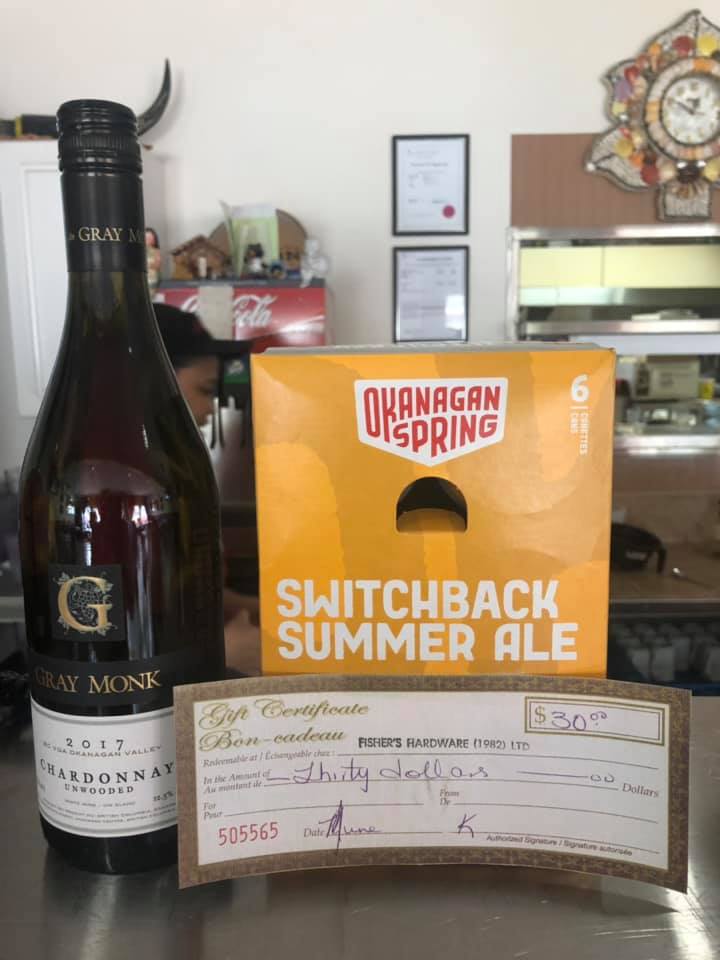 GRAY M
Coca-Cola
OKANAGAN
SPRING
6
CANETTES
CANS
SWITCHBACK
SUMMER ALE
G
GRAY MONK
2017
BC VQA OKANAGAN VALLEY
CHARDONNAY
UNWOODED
WHITE WINE • VIN BLANC
Gift Certificate
Bon-cadeau
$ 30.00
Redeemable at / Échangeable chez : FISHER'S HARDWARE (1982) LTD
In the Amount of Thirty dollars 00 Dollars
Au montant de
For From
Pour De
505565 Date June K
Authorized Signature / Signature autorisée